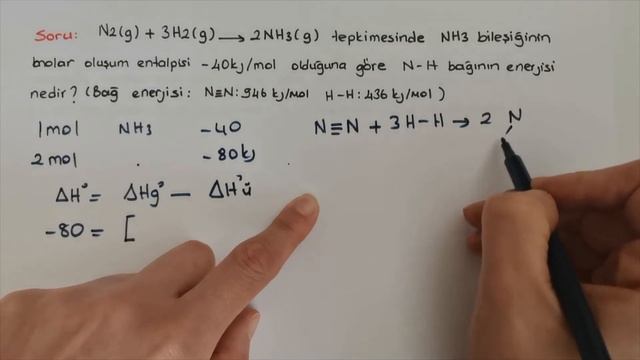 Soru: N2(g) + 3H2(g) → 2NH3(g) tepkimesinde NH3 bileşiğinin
molar oluşum entalpisi -40kj/mol olduğuna göre N-H bağının enerjisi
nedir? (Bağ enerjisi: N≡N: 946 kj/mol H-H: 436 kj/mol)
1mol NH3 -40
2mol . -80kj .
ΔH° = ΔHg° — ΔH°ü
-80 = [
N≡N + 3H-H → 2 N